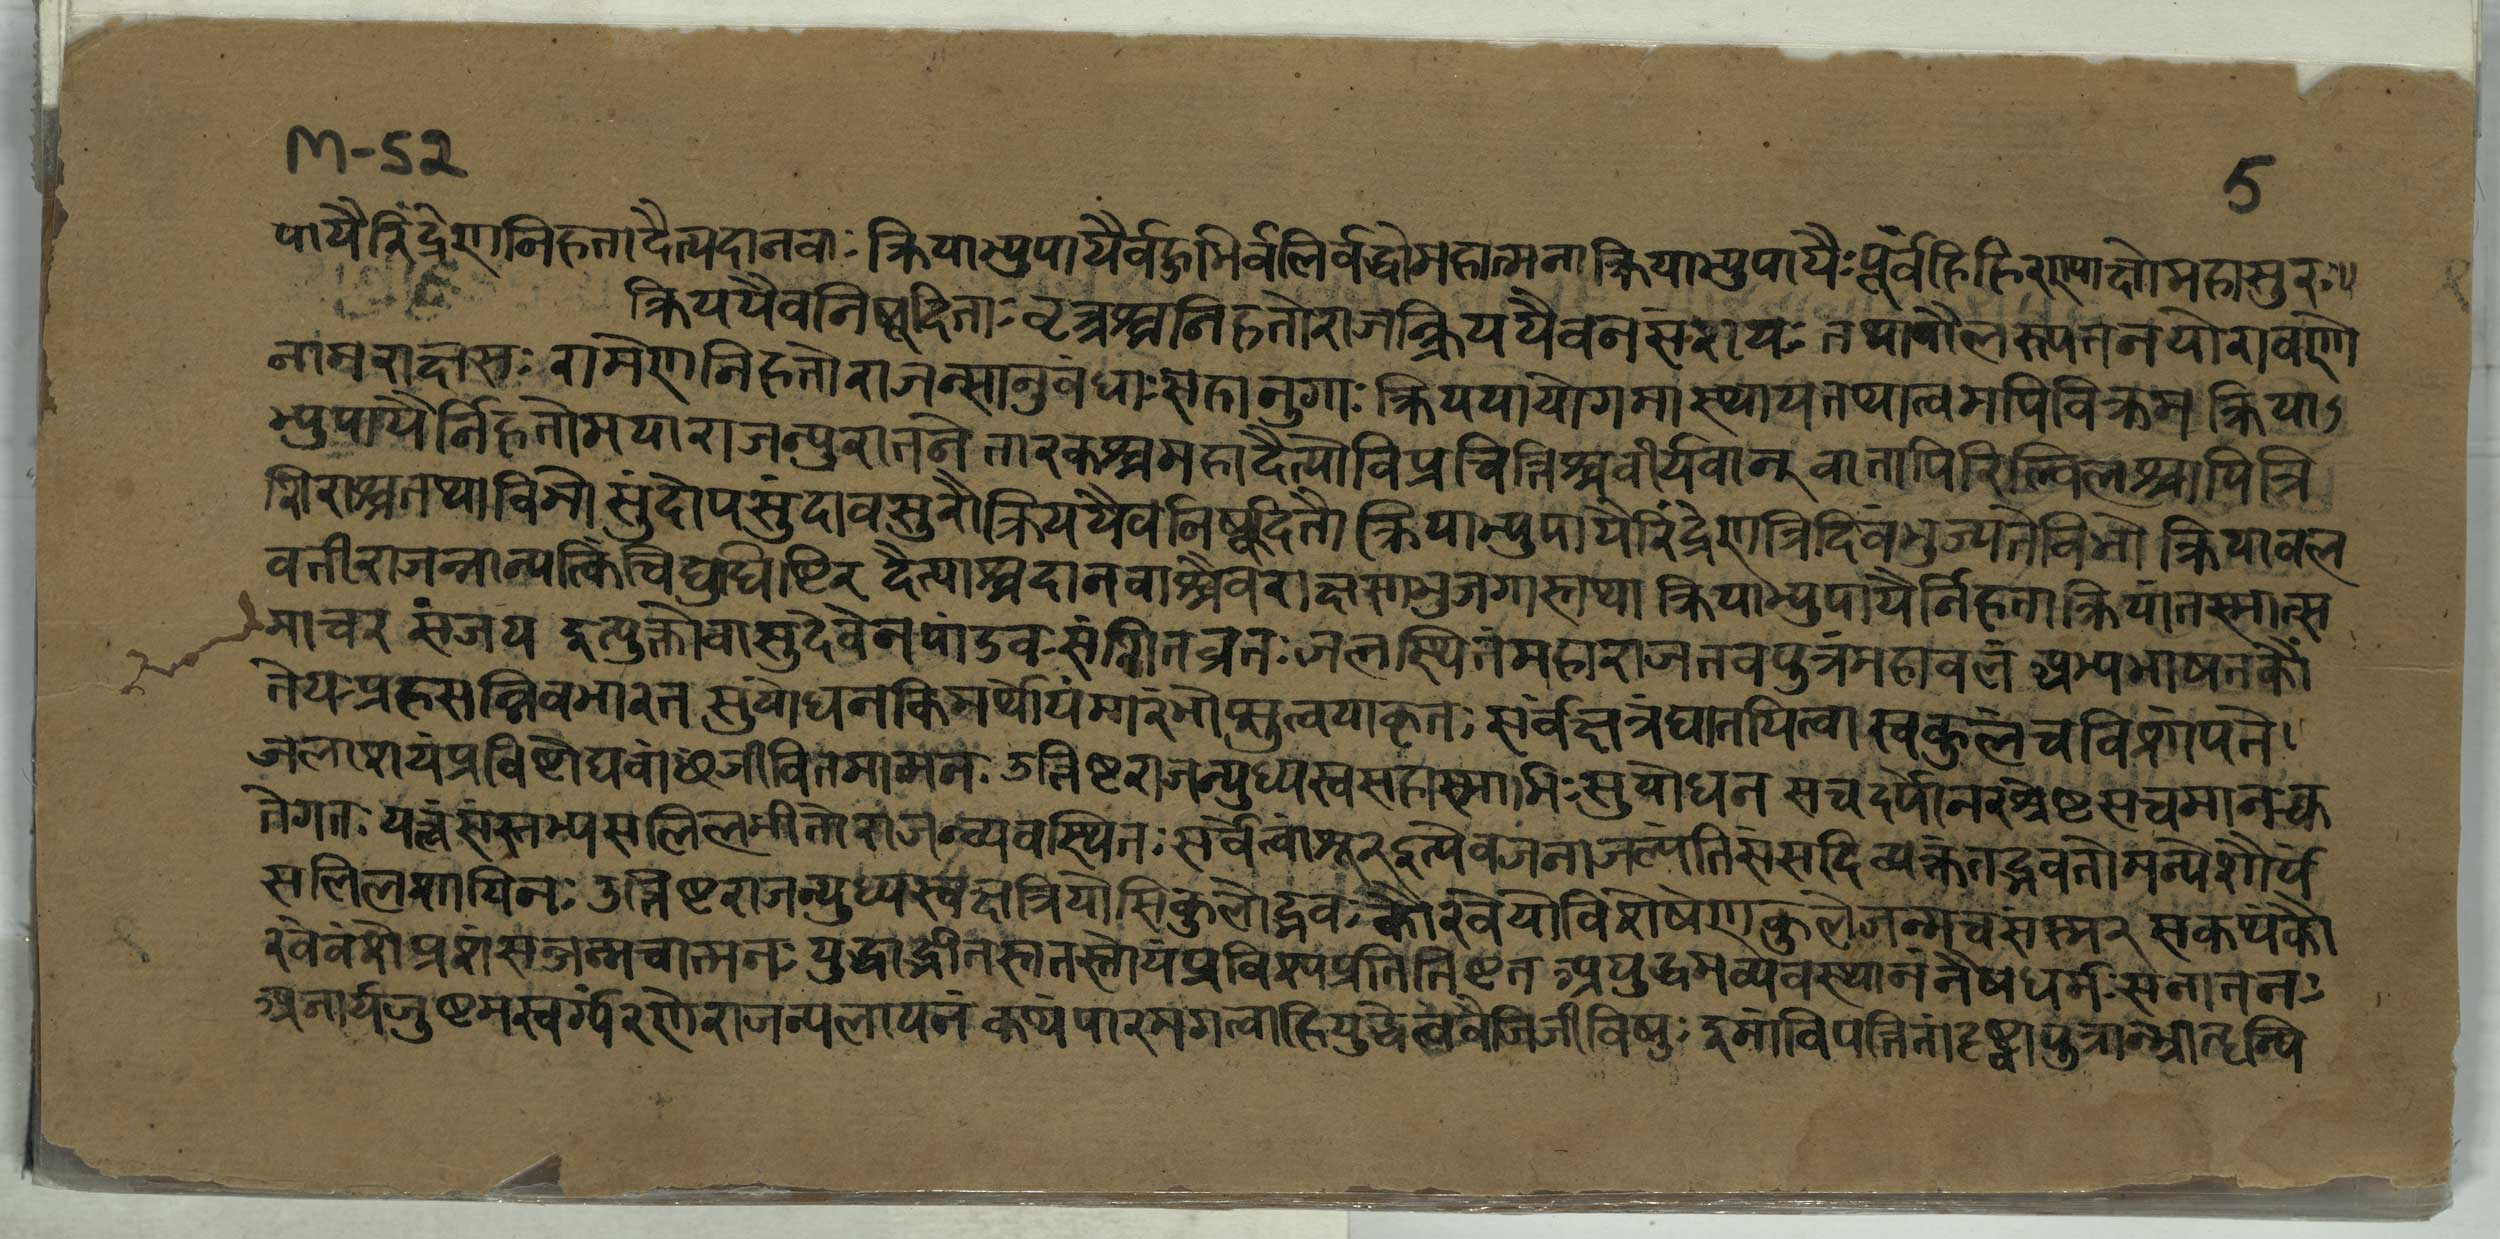 M-52
5
पायैरिंद्रेणनिहतादैत्यदानवाः क्रियाभ्युपायैर्वहुभिर्वलिर्वद्धोमहात्मना क्रियाभ्युपायैः पूर्वंहिहिरण्याक्षोमहासुरः॥
क्रिययैवनिषूदिताः वृत्रश्चनिहतोराजन्क्रिययैवनसंशयः तथापौलस्त्यतनयोरावणो
नामराक्षसः रामेणनिहतोराजन्सानुवंधाः सहानुगाः क्रिययायोगमास्थायतथात्वमपिविक्रम क्रिया
भ्युपायैर्निहतौमयाराजन्पुरातने तारकश्चमहादैत्योविप्रचित्तिश्चवीर्यवान् वातापिरिल्विलश्चापित्रि
शिराश्चतथाविभो सुंदोपसुंदावसुरौक्रिययैवनिषूदितौ क्रियाभ्युपायैरिंद्रेणत्रिदिवंभुज्यतेविभो क्रियावल
वतीराजन्नान्यत्किंचिद्युधिष्ठिर दैत्याश्चदानवाश्चैवराक्षसाभुजगास्तथा क्रियाभ्युपायैर्निहताक्रियांतस्मात्स
माचर संजय इत्युक्तोवासुदेवेनपांडवः संशितव्रतः जलस्थितंमहाराजतवपुत्रंमहावलं अभ्यभाषतकौं
तेयः प्रहसन्निवभारत सुयोधनकिमर्थोयंमारंभोप्सुत्वयाकृतः सर्वंक्षत्रंघातयित्वा स्वकुलंचविशांपते
जलाशयंप्रविष्टोद्यवांछञ्जीवितमात्मनः उत्तिष्टराजन्युध्यस्वसहास्माभिः सुयोधन सचदर्पोनरश्रेष्टसचमानः क्व
तेगतः यत्त्वंसंस्तभ्यसलिलभीतोराजन्व्यवस्थितः सर्वेत्वांशूरइत्येवजनाजल्पंतिसंसदि व्यक्तंतद्भवतोमन्येशौर्यं
सलिलशायिनः उत्तिष्टराजन्युध्यस्वक्षत्रियोसिकुलोद्भवः कौरवेयोविशेषेणकुलेजन्मचसंस्मर सकथंकौ
रवेवंशेप्रशंसञ्जन्मचात्मनः युद्धाद्भीतस्ततस्तोयंप्रविश्यप्रतितिष्टत अयुद्धमव्यवस्थानंनैषधर्मः सनातनः
अनार्यजुष्टमस्वर्ग्यंरणेराजन्पलायनं कथंपारमगत्वाहियुद्धेत्वंवैजिजीविषुः इमांविपतितांदृष्ट्वापुत्रान्भ्रातृन्पि